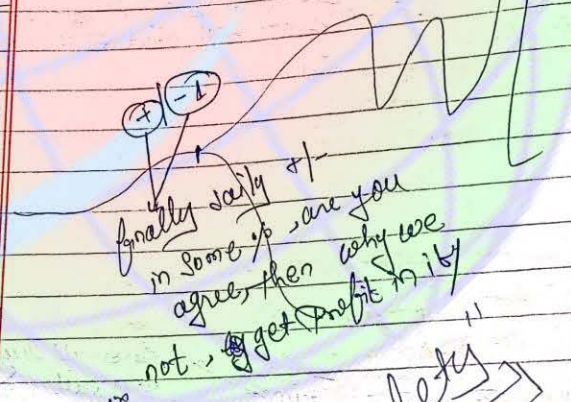 +/-1
finally saily +/-
in some %, are you
agree, then why we
not, get profit in it